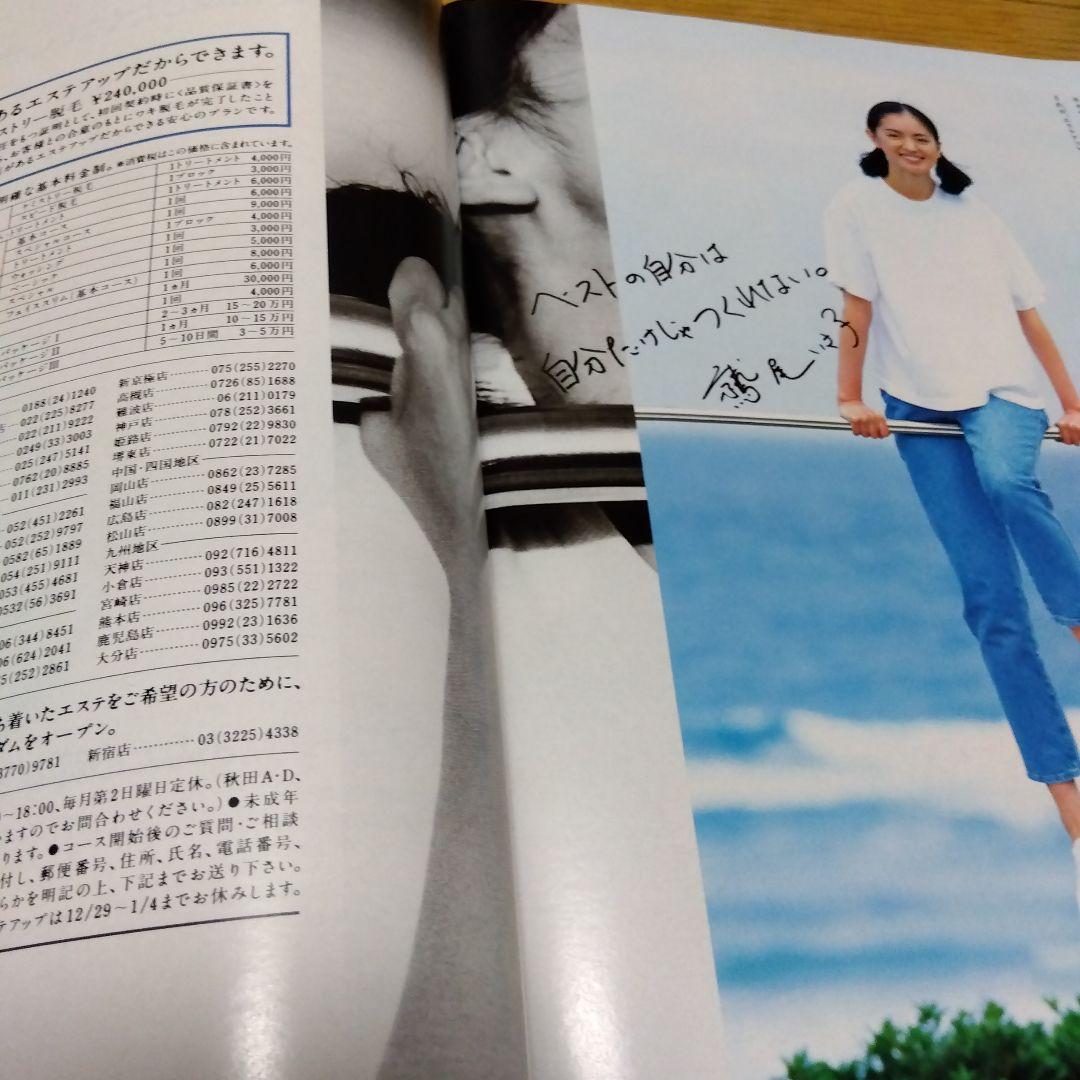 あるエステアップだからできます。
ストリー脱毛 ¥240,000
任をもつ証明として、初回契約時に〈品質保証書〉を
、お客様との合意のもとにワキ脱毛が完了したこと
があるエステアップだからできる安心のプランです。
明確な基本料金制。※消費税はこの価格に含まれています。
ケミストリー脱毛 1トリートメント 4,000円
スピード脱毛 1ブロック 3,000円
トリートメント 1トリートメント 6,000円
基本コース 1回 6,000円
スペシャルコース 1回 9,000円
トリートメント 1ブロック 4,000円
ウォッシング 1回 3,000円
ベーシック 1回 5,000円
スペシャル 1回 8,000円
フェイススリム(基本コース) 1回 6,000円
1ヵ月 30,000円
1回 4,000円
パッケージⅠ 2～3ヵ月 15～20万円
パッケージⅡ 1ヵ月 10～15万円
パッケージⅢ 5～10日間 3～5万円
0188(24)1240
022(225)8277
022(211)9222
0249(33)3003
025(247)5141
0762(20)8885
011(231)2993
052(451)2261
052(252)9797
0582(65)1889
054(251)9111
053(455)4681
0532(56)3691
06(344)8451
06(624)2041
5(252)2861
新京極店 075(255)2270
高槻店 0726(85)1688
難波店 06(211)0179
神戸店 078(252)3661
姫路店 0792(22)9830
堺東店 0722(21)7022
中国・四国地区
岡山店 0862(23)7285
福山店 0849(25)5611
広島店 082(247)1618
松山店 0899(31)7008
九州地区
天神店 092(716)4811
小倉店 093(551)1322
宮崎店 0985(22)2722
熊本店 096(325)7781
鹿児島店 0992(23)1636
大分店 0975(33)5602
ち着いたエステをご希望の方のために、
ダムをオープン。
3770)9781 新宿店 03(3225)4338
～18:00、毎月第2日曜日定休。(秋田A・D、
いますのでお問合わせください。)●未成年
ります。●コース開始後のご質問・ご相談
付し、郵便番号、住所、氏名、電話番号、
らかを明記の上、下記までお送り下さい。
テアップは12/29～1/4までお休みします。
ベストの自分は
自分だけじゃつくれない。
鷲尾いさ子